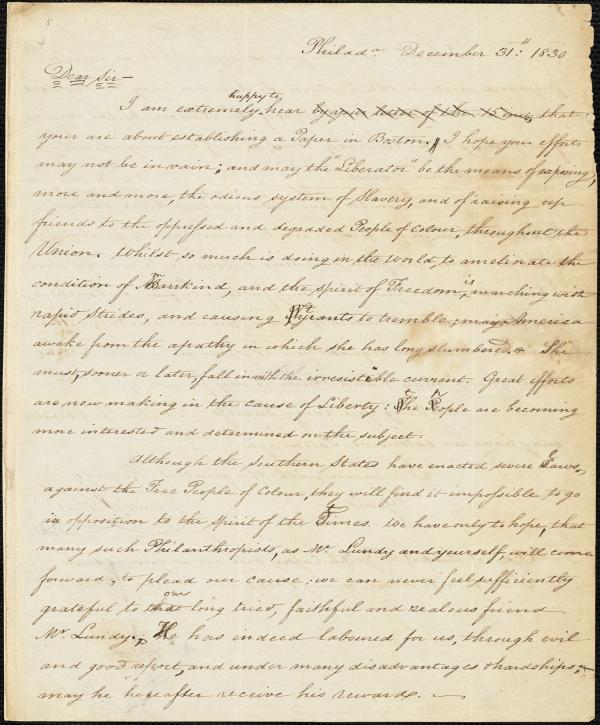 Philada. December 31st: 1830
Dear Sir—
happy to
I am extremely hear by your letter of the 15 inst, that
your are about establishing a Paper in Boston. I hope your efforts
may not be in vain; and may the "Liberator" be the means of exposing,
more and more, the odious system of Slavery, and of raising up
friends to the oppressed and degraded People of Colour, throughout the
Union. Whilst so much is doing in the world, to ameliorate the
condition of Mankind, and the spirit of Freedom is marching with
rapid Strides, and causing Tyrants to tremble; may America
awake from the apathy in which she has long slumbered. She
must, sooner or later, fall in with the irresistible current. Great efforts
are now making in the cause of Liberty: The People are becoming
more interested and determined on the subject.
Although the Southern States have enacted severe Laws,
against the Free People of Colour, they will find it impossible to go
in opposition to the spirit of the Times. We have only to hope, that
many such Philanthropists, as Mr. Lundy and yourself, will come
forward, to plead our cause; we can never feel sufficiently
our
grateful to that long tried, faithful and zealous friend
Mr. Lundy. He has indeed laboured for us, through evil
and good report, and under many disadvantages & hardships;
may he hereafter receive his reward. —